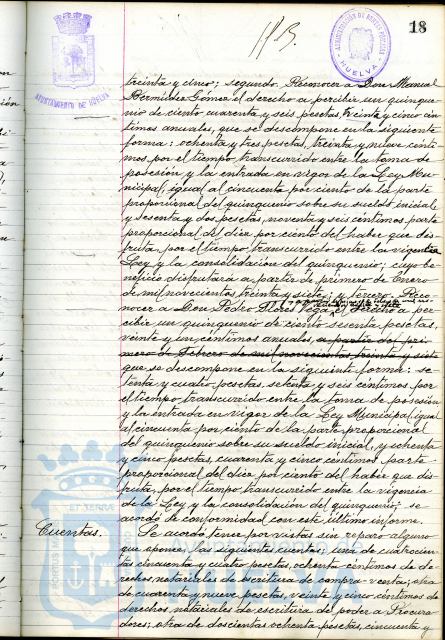 18
AYUNTAMIENTO DE HUELVA
HUELVA
treinta y cinco; segundo. Reconocer a Don Manuel
Bermúdez Gómez el derecho a percibir un quinque-
nio de ciento cuarenta y seis pesetas, treinta y cinco cén-
timos anuales, que se descompone en la siguiente
forma: ochenta y tres pesetas, treinta y nueve cénti-
mos por el tiempo transcurrido entre la toma de
posesión y la entrada en vigor de la Ley Mu-
nicipal, igual al cincuenta por ciento de la parte
proporcional del quinquenio sobre su sueldo inicial,
y sesenta y dos pesetas, noventa y seis céntimos, parte
proporcional del diez por ciento del haber que dis-
fruta, por el tiempo transcurrido entre la vigencia
Ley y la consolidación del quinquenio; cuyo be-
neficio disfrutará a partir de primero de Enero
de mil novecientos treinta y siete; y tercero. Reco-
nocer a Don Pedro Flores Vega, el derecho a per-
cibir un quinquenio de ciento sesenta pesetas,
veinte y un céntimos anuales, a partir del pri-
mero de Febrero de mil novecientos treinta y siete
que se descompone en la siguiente forma: se-
tenta y cuatro pesetas, setenta y seis céntimos por
el tiempo transcurrido entre la toma de posesión
y la entrada en vigor de la Ley Municipal, igual
al cincuenta por ciento de la parte proporcional
del quinquenio sobre su sueldo inicial, y ochenta
y cinco pesetas, cuarenta y cinco céntimos parte
proporcional del diez por ciento del haber que dis-
fruta, por el tiempo transcurrido entre la vigencia
de la Ley y la consolidación del quinquenio; se
acordó de conformidad con este último informe.
Cuentas. Se acordó tener por vistas sin reparo alguno
que oponer, las siguientes cuentas: una de cuatrocien-
tas cincuenta y cuatro pesetas, ochenta céntimos de de-
rechos notariales de escritura de compra-venta; otra
de cuarenta y nueve pesetas, veinte y cinco céntimos de
derechos notariales de escritura de poder a Procura-
dores; otra de doscientas ochenta pesetas, cincuenta y